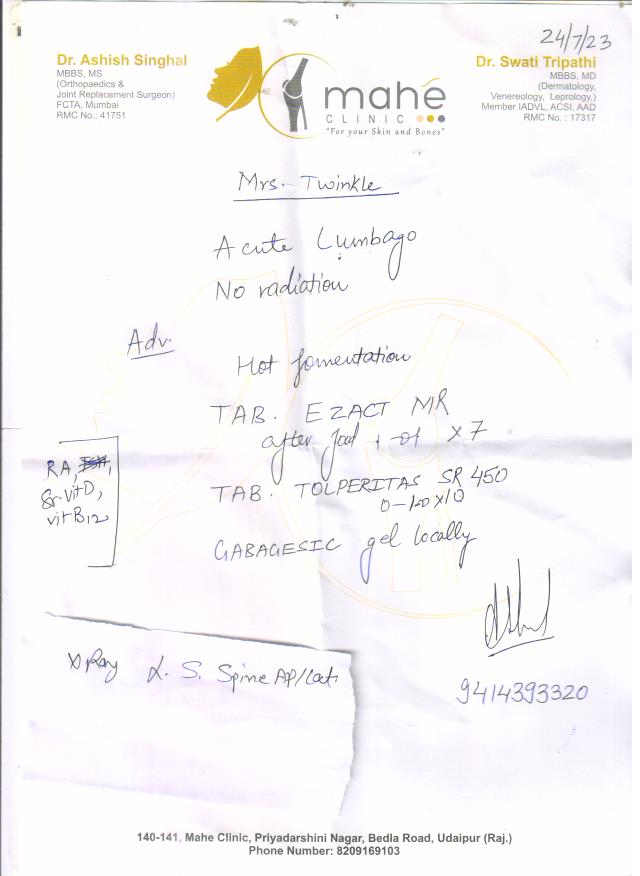 24/7/23
Dr. Ashish Singhal
MBBS, MS
(Orthopaedics &
Joint Replacement Surgeon)
FCTA, Mumbai
RMC No.: 41751
mahé
CLINIC
"For your Skin and Bones"
Dr. Swati Tripathi
MBBS, MD
(Dermatology,
Venereology, Leprology,)
Member IADVL, ACSI, AAD
RMC No. : 17317
Mrs. Twinkle
Acute Lumbago
No radiation
Adv.
Hot fomentation
TAB. EZACT MR
after food 1-01 x 7
RA,
Sr. Vit D,
vit B12
TAB. TOLPERITAS SR 450
x10
GABAGESIC gel locally
X Ray L. S. Spine AP/Lat.
9414393320
140-141, Mahe Clinic, Priyadarshini Nagar, Bedla Road, Udaipur (Raj.)
Phone Number: 8209169103